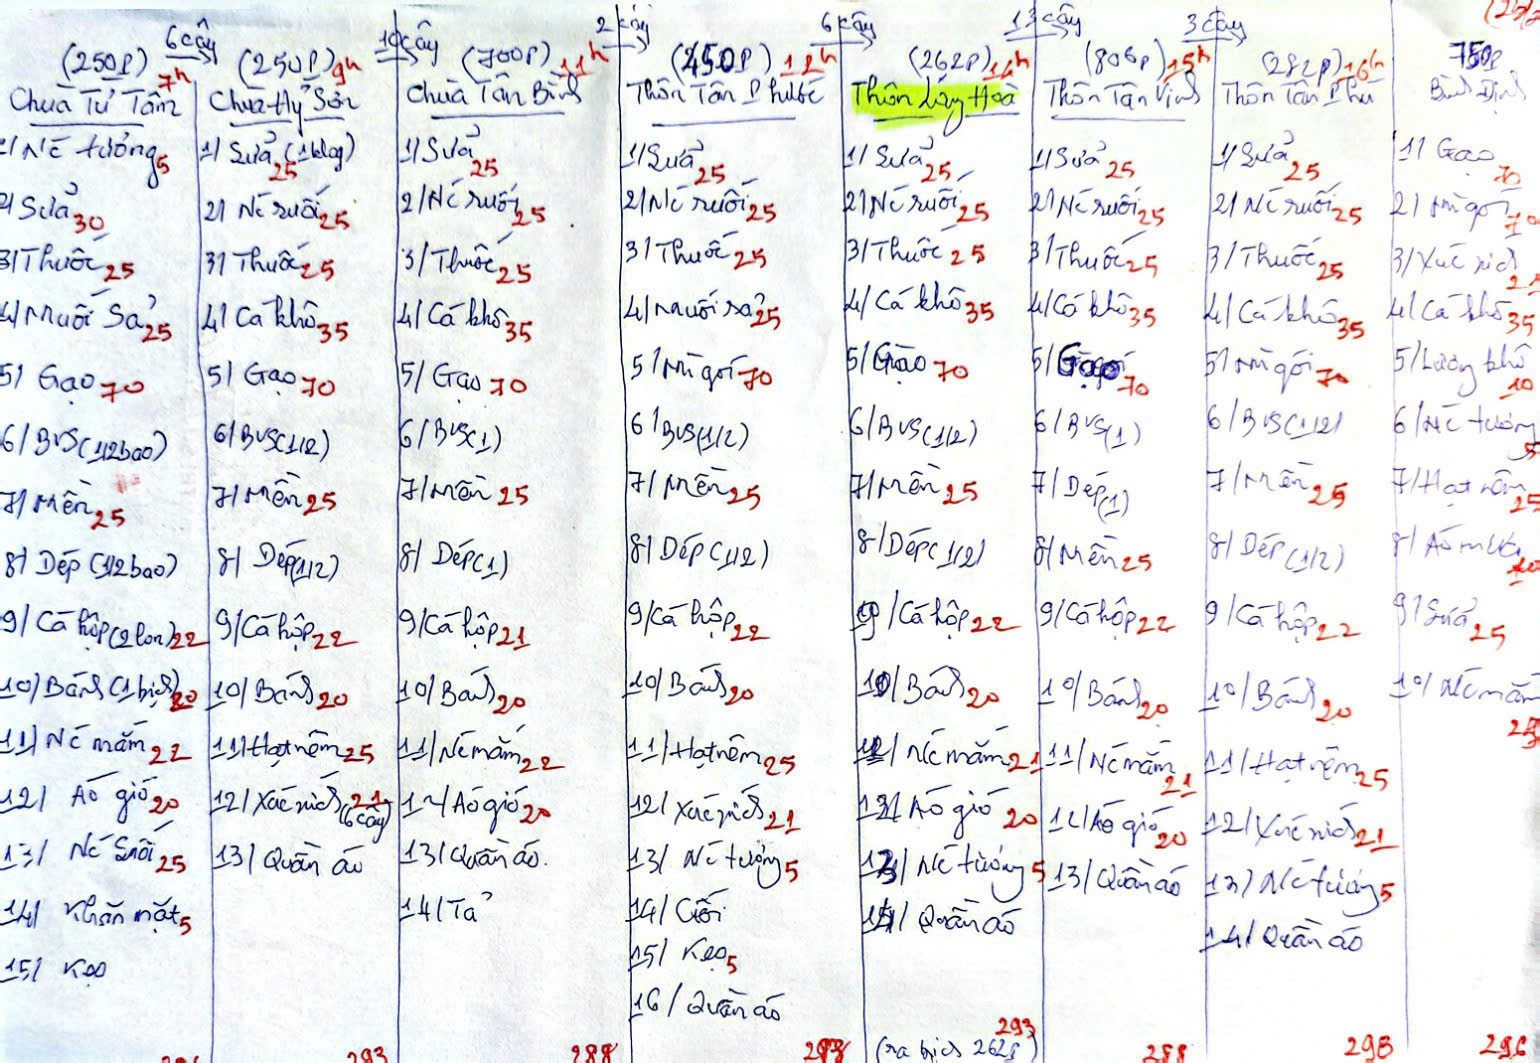 6 cây
10 cây
2 cây
6 cây
13 cây
3 cây
(250P) 7h
Chùa Từ Tâm
1/ Nc tương 5
2/ Sữa 30
3/ Thuốc 25
4/ Muối Sả 25
5/ Gạo 70
6/ BVS (1/2 bao)
7/ Mền 25
8/ Dép (1/2 bao)
9/ Cá hộp (2 lon) 22
10/ Bánh (1 bịch) 20
11/ Nc mắm 22
12/ Áo gió 20
13/ Nc Suối 25
14/ Khăn mặt 5
15/ Kẹo
(250P) 9h
Chùa Hy Sơn
1/ Sữa (1 blog) 25
2/ Nc suối 25
3/ Thuốc 25
4/ Cá khô 35
5/ Gạo 70
6/ BVS (1/2)
7/ Mền 25
8/ Dép (1/2)
9/ Cá hộp 22
10/ Bánh 20
11/ Hạt nêm 25
12/ Xúc xích 21 (6 cây)
13/ Quần áo
293
(700P) 11h
Chùa Tân Bình
1/ Sữa 25
2/ Nc suối 25
3/ Thuốc 25
4/ Cá khô 35
5/ Gạo 70
6/ BVS (1)
7/ Mền 25
8/ Dép (1)
9/ Cá hộp 21
10/ Bánh 20
11/ Nc mắm 22
12/ Áo gió 20
13/ Quần áo.
14/ Tả
288
(450P)
Thôn Tân Phước
1/ Sữa 25
2/ Nc suối 25
3/ Thuốc 25
4/ Muối sả 25
5/ Mì gói 70
6/ BVS (1/2)
7/ Mền 25
8/ Dép (1/2)
9/ Cá hộp 22
10/ Bánh 20
11/ Hạt nêm 25
12/ Xúc xích 21
13/ Nc tương 5
14/
15/ Kẹo 5
16/ Quần áo
(262P) 14h
Thôn Hoà
1/ Sữa 25
2/ Nc suối 25
3/ Thuốc 25
4/ Cá khô 35
5/ Gạo 70
6/ BVS (1/2)
7/ Mền 25
8/ Dép (1/2)
9/ Cá hộp 22
10/ Bánh 20
11/ Nc mắm 21
12/ Áo gió 20
13/ Nc tương 5
14/ Quần áo
293
(ra bịch 262P)
(806P) 15h
Thôn Tân Vinh
1/ Sữa 25
2/ Nc suối 25
3/ Thuốc 25
4/ Cá khô 35
5/ Gạo 70
6/ BVS (1)
7/ Dép (1)
8/ Mền 25
9/ Cá hộp 22
10/ Bánh 20
11/ Nc mắm 21
12/ Áo gió 20
13/ Quần áo
288
(282P) 16h
Thôn Tân Phú
1/ Sữa 25
2/ Nc suối 25
3/ Thuốc 25
4/ Cá khô 35
5/ Mì gói 70
6/ BVS (1/2)
7/ Mền 25
8/ Dép (1/2)
9/ Cá hộp 22
10/ Bánh 20
11/ Hạt nêm 25
12/ Xúc xích 21
13/ Nc tương 5
14/ Quần áo
298
750P
Bình Định
1/ Gạo 70
2/ Mì gói 70
3/ Xúc xích 21
4/ Cá khô 35
5/ Lương khô 10
6/ Nc tương 5
7/ Hạt nêm 25
8/ Áo mưa
9/ Sữa 25
10/ Nc mắm 25
296